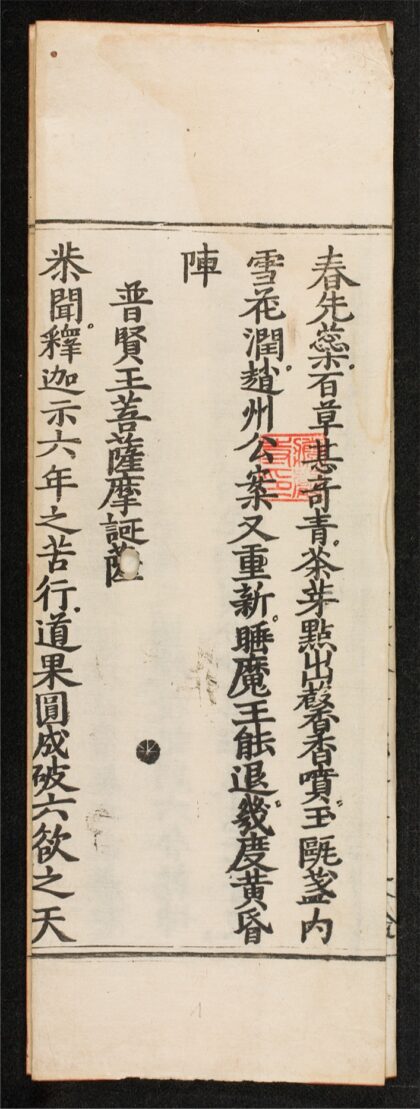 春先蘂。百草甚奇青。茶芽點出馨香噴。玉甌盞内
雪花潤。趙州公案又重新。睡魔王能退。幾度黃昏
陣
普賢王菩薩摩訶薩
恭聞。釋迦示六年之苦行。道果圓成破六欲之天